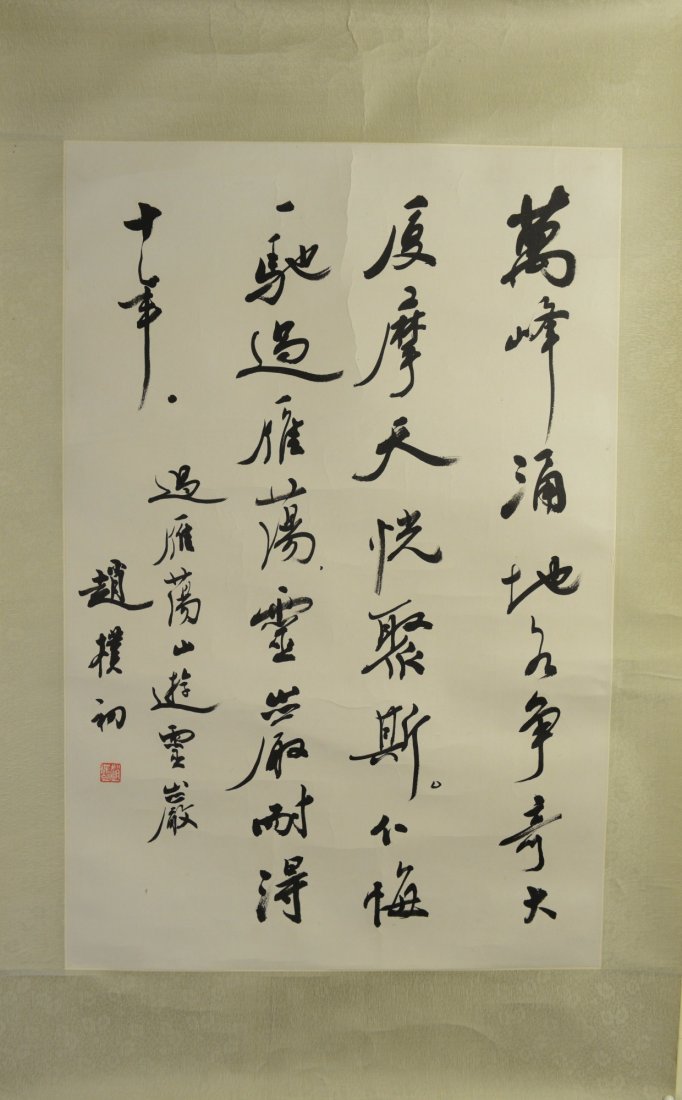 萬峰涌地各争奇大
厦摩天恍聚斯。不悔
一馳過雁蕩、靈巖耐得
十年。
過雁蕩山遊靈巖
趙樸初